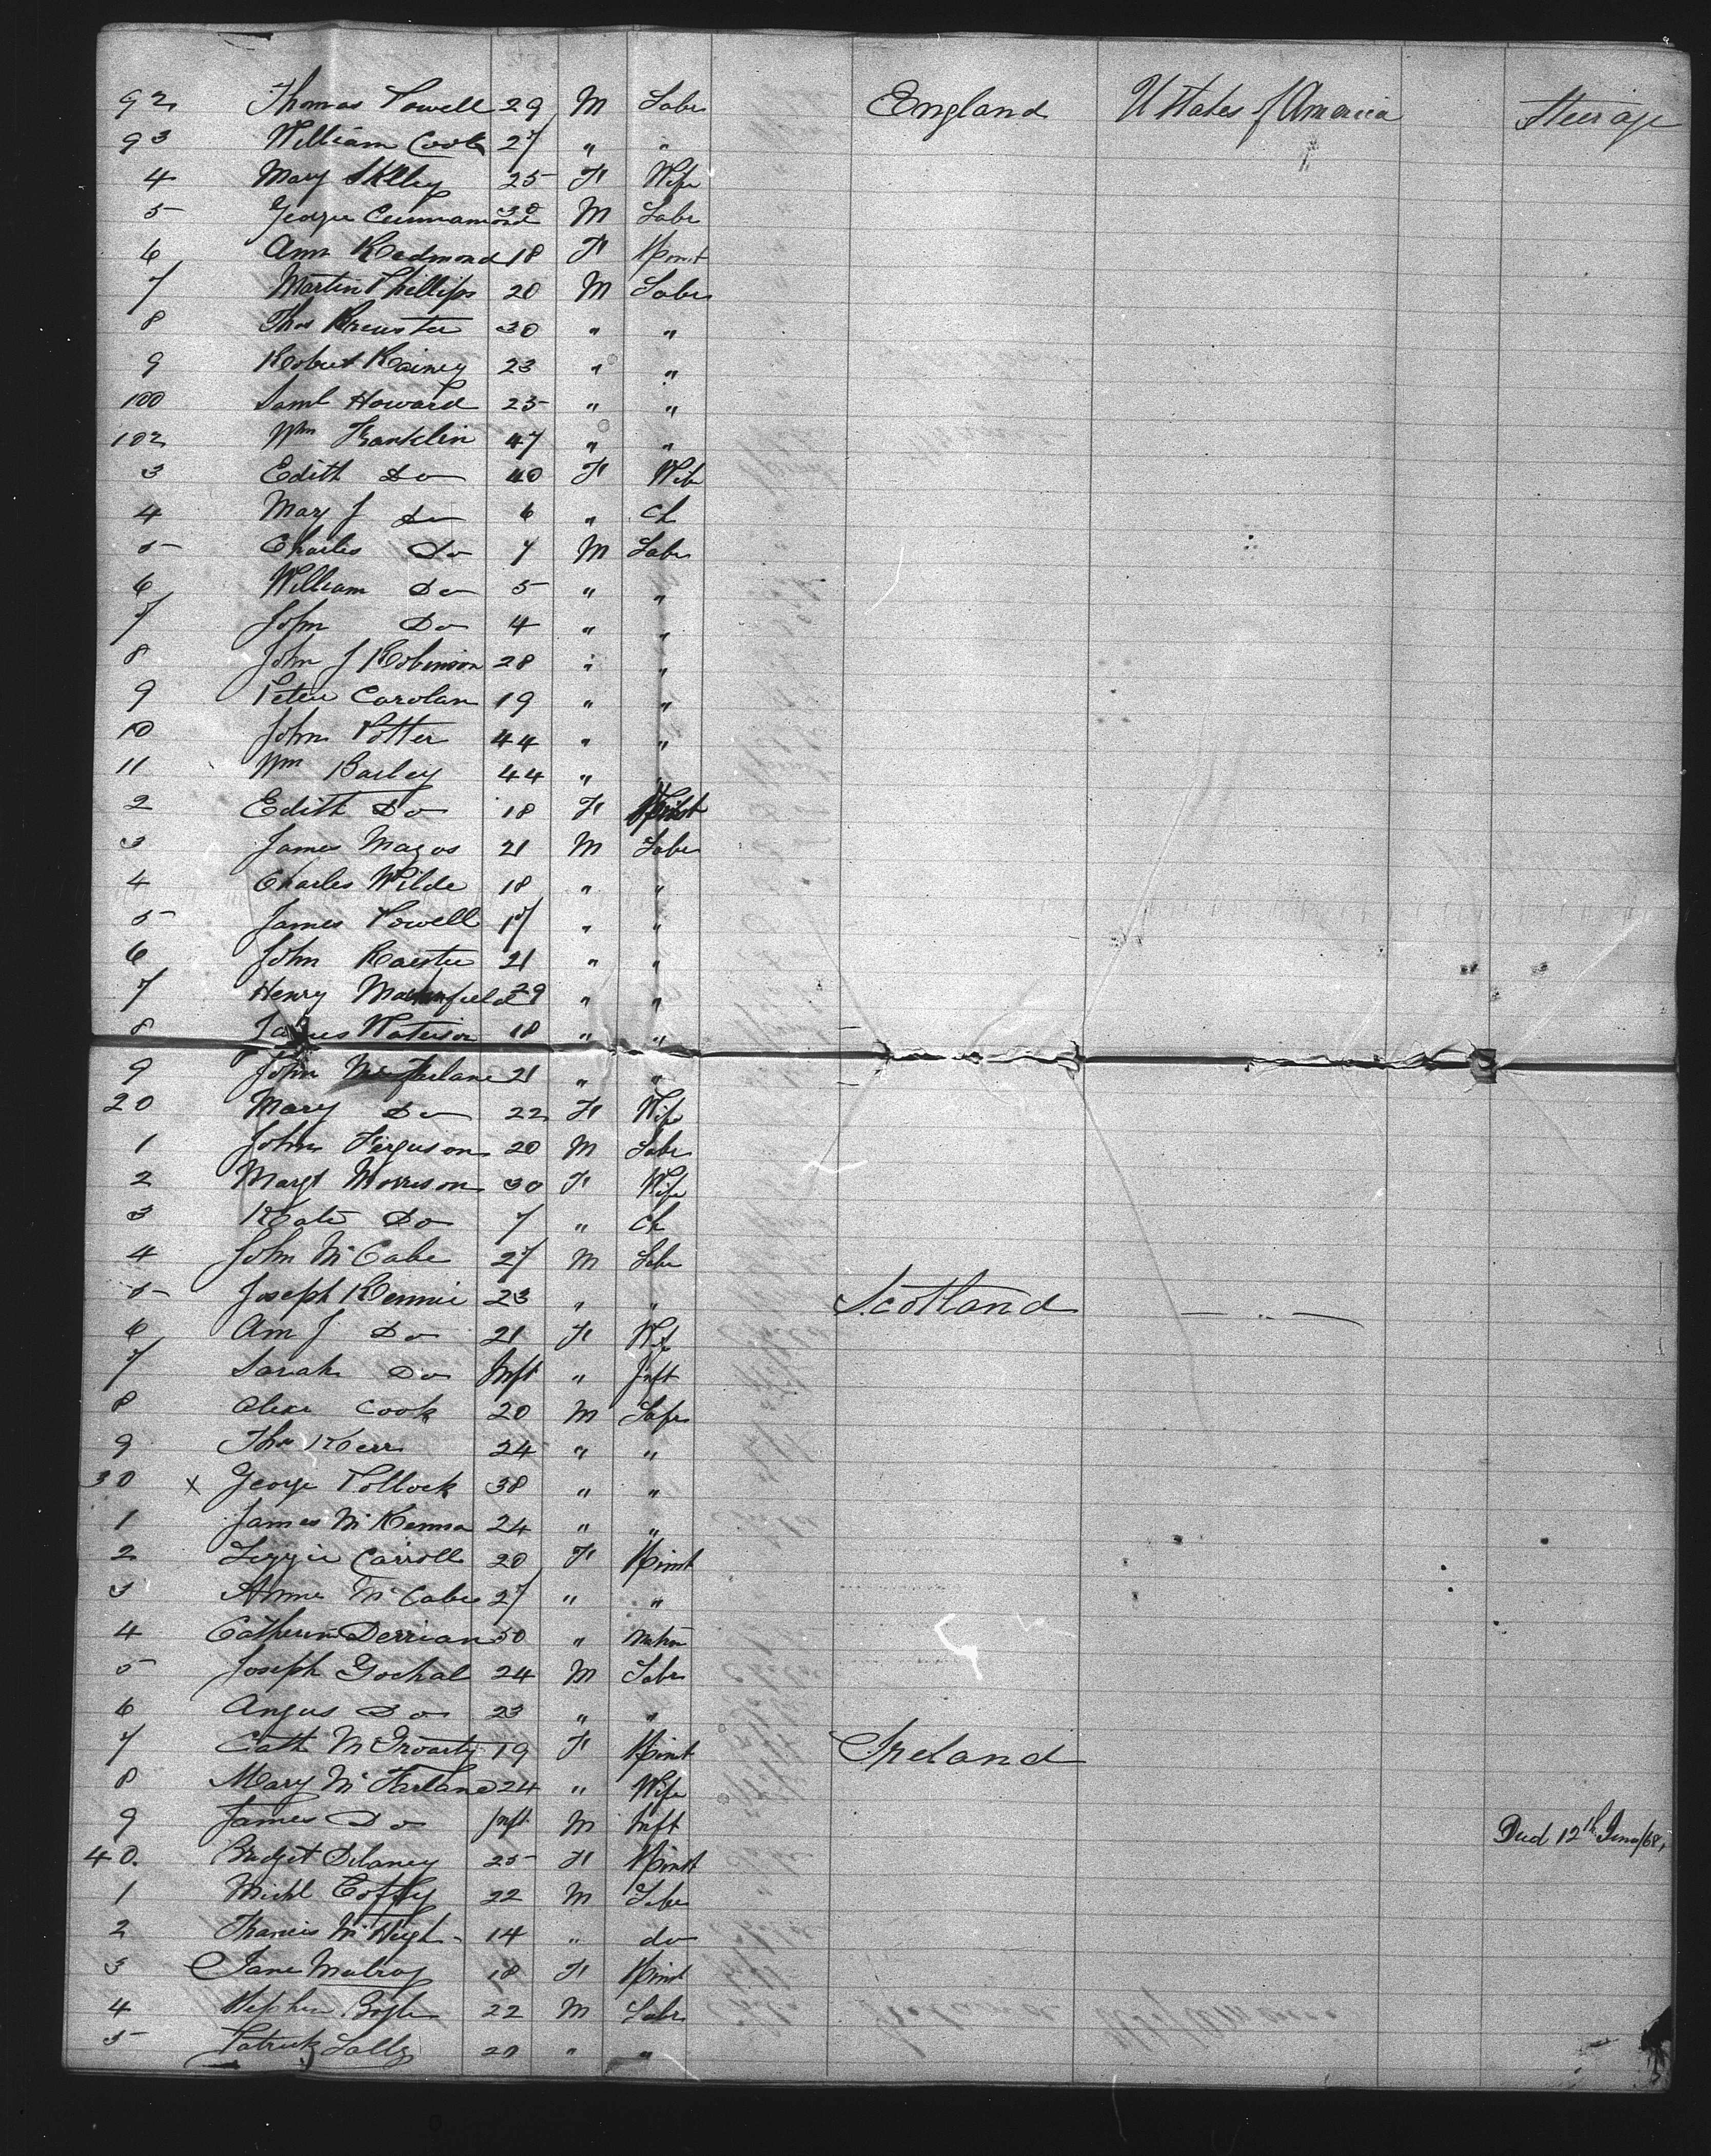 92 Thomas Powell 29 M Labr England U States of America Steerage
93 William Cook 27 " "
4 Mary Skelly 25 F Wife
5 George Cunnamond 30 M Labr
6 Ann Redmond 18 F Spinst
7 Martin Phillips 20 M Labr
8 Thos Brewster 30 " "
9 Robert Rainey 23 " "
100 Saml Howard 25 " "
102 Wm Franklin 47 " "
3 Edith Do 40 F Wife
4 Mary J Do 6 " Ch
5 Charles Do 7 M Labr
6 William Do 5 " "
7 John Do 4 " "
8 John J Robinson 28 " "
9 Peter Carolan 19 " "
10 John Potter 44 " "
11 Wm Barley 44 " "
2 Edith Do 18 F Spinst
3 James Magos 21 M Labr
4 Charles Wilde 18 " "
5 James Powell 17 " "
6 John 21 " "
7 Henry 29 " "
8 James 18 " "
9 John McFarlane 21 " "
20 Mary Do 22 F Wife
1 John Ferguson 20 M Labr
2 Margt Morrison 30 F Wife
3 Kate Do 7 " Ch
4 John McCabe 27 M Labr
5 Joseph Rennie 23 " " Scotland — " —
6 Ann J Do 21 F Wife
7 Sarah Do Inft " Inft
8 Alexr Cook 20 M Labr
9 Thos Kerr 24 " "
30 x George Pollock 38 " "
1 James McKenna 24 " "
2 Lizzie Carroll 20 F Spinst
3 Annie McCabe 27 " "
4 Catherine Derrian 50 " Matron
5 Joseph Gochal 24 M Labr
6 Angus Do 23 " "
7 Cath McGroarty 19 F Spinst Ireland
8 Mary McFarland 24 " Wife
9 James Do Inft M Inft Died 12th June/68
40. Bridget Delaney 25 F Spinst
1 Michl Coffey 22 M Labr
2 Francis McHugh 14 " do
3 Jane Mulroy 18 F Spinst
4 Stephen Boyle 22 M Labr
5 Patrick Lally 20 " "